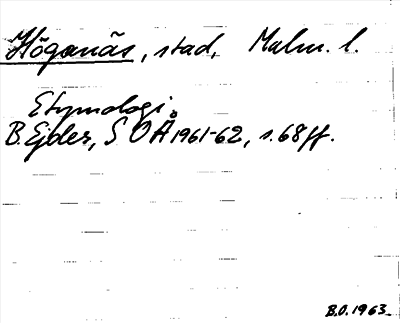 Höganäs, stad, Malm. l.
Etymologi
B. Ejder, S O Å 1961-62, s. 68 ff.
B.O. 1963